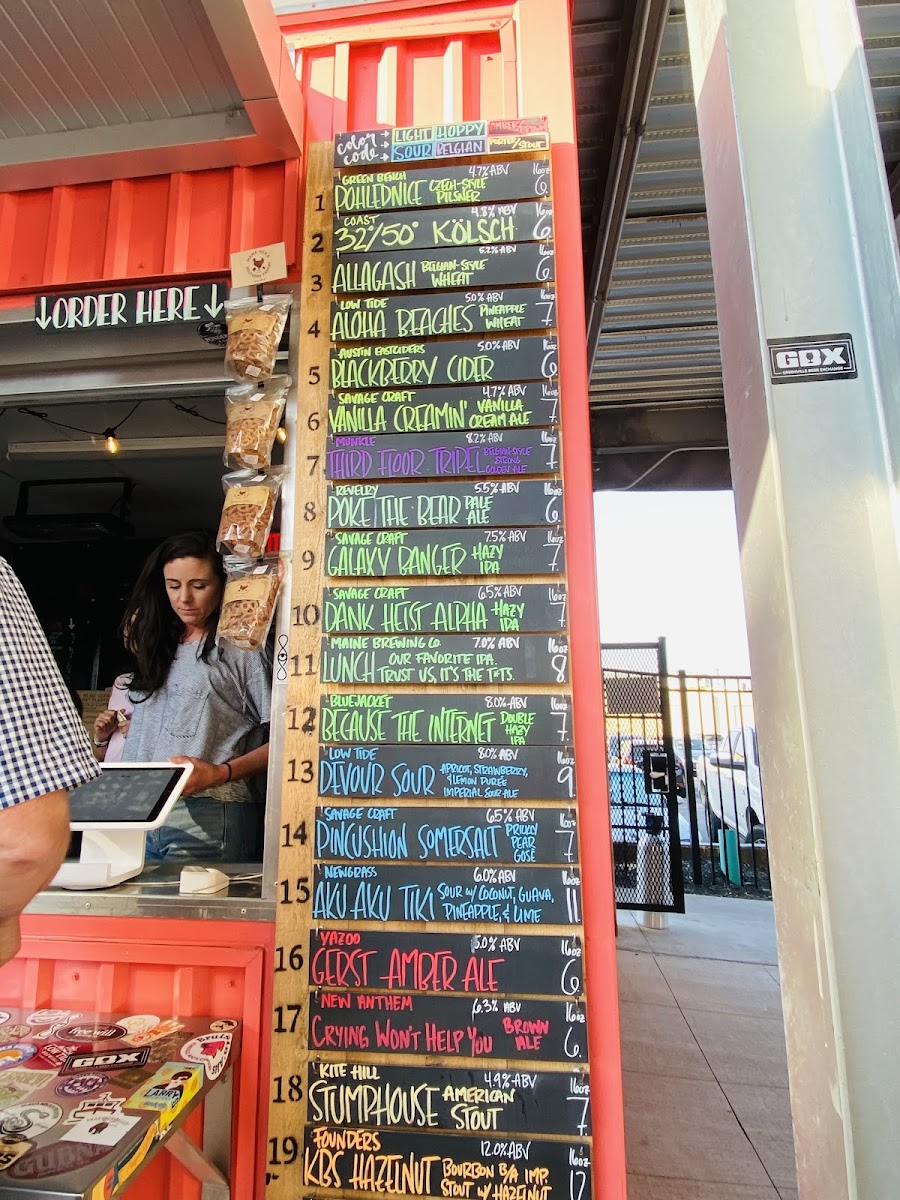 color code →
LIGHT HOPPY AMBER/
SOUR BELGIAN PORTER/STOUT
↓ORDER HERE↓
GBX
GREENVILLE BEER EXCHANGE
1
GREEN BENCH 4.7% ABV 16oz
POHLEDNICE CZECH-STYLE PILSNER 6.
2
COAST 4.8% ABV 16oz
32°/50° KÖLSCH 6.
3
5.2% ABV 16oz
ALLAGASH BELGIAN-STYLE WHEAT 6.
4
LOW TIDE 5.0% ABV 16oz
ALOHA BEACHES PINEAPPLE WHEAT 7.
5
AUSTIN EASTCIDERS 5.0% ABV 16oz
BLACKBERRY CIDER 6.
6
SAVAGE CRAFT 4.7% ABV 16oz
VANILLA CREAMIN' VANILLA CREAM ALE 7.
7
MUNKLE 8.2% ABV 16oz
THIRD FLOOR TRIPEL BELGIAN-STYLE STRONG GOLDEN ALE 7.
8
REVELRY 5.5% ABV 16oz
POKE THE BEAR PALE ALE 6.
9
SAVAGE CRAFT 7.5% ABV 16oz
GALAXY BANGER HAZY IPA 7.
10
SAVAGE CRAFT 6.5% ABV 16oz
DANK HEIST ALPHA HAZY IPA 7.
11
MAINE BREWING CO. 7.0% ABV 16oz
LUNCH OUR FAVORITE IPA. TRUST US, IT'S THE T*TS. 8
12
BLUEJACKET 8.0% ABV 16oz
BECAUSE THE INTERNET DOUBLE HAZY IPA 7.
13
LOW TIDE 8.0% ABV 16oz
DEVOUR SOUR APRICOT, STRAWBERRY, & LEMON PUREE IMPERIAL SOUR ALE 9
14
SAVAGE CRAFT 6.5% ABV 16oz
PINCUSHION SOMERSALT PRICKLY PEAR GOSE 7
15
NEWGRASS 6.0% ABV 16oz
AKU AKU TIKI SOUR W/ COCONUT, GUAVA, PINEAPPLE, & LIME 11
16
YAZOO 5.0% ABV 16oz
GERST AMBER ALE 6.
17
NEW ANTHEM 6.3% ABV 16oz
CRYING WON'T HELP YOU BROWN ALE 6.
18
KITE HILL 4.9% ABV 16oz
STUMPHOUSE AMERICAN STOUT 7
19
FOUNDERS 12.0% ABV 16oz
KBS HAZELNUT BOURBON B/A IMP. STOUT W/ HAZELNUT 12
freewill
GBX
LARRY
GUBNA